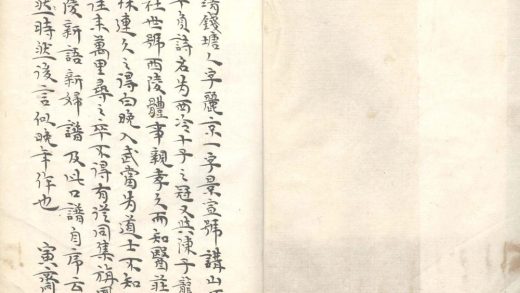 錢塘人字麗京一字景宣號講山
貞詩名為西泠十子之冠又與陳子龍
社世號西陵體事親孝久而知醫莊
株連久之得白晚入武當為道士不知
往來萬里尋之卒不得有從同集
陵新語新婦譜及此口譜自序云
然時然後言似晚年作也 寅齋